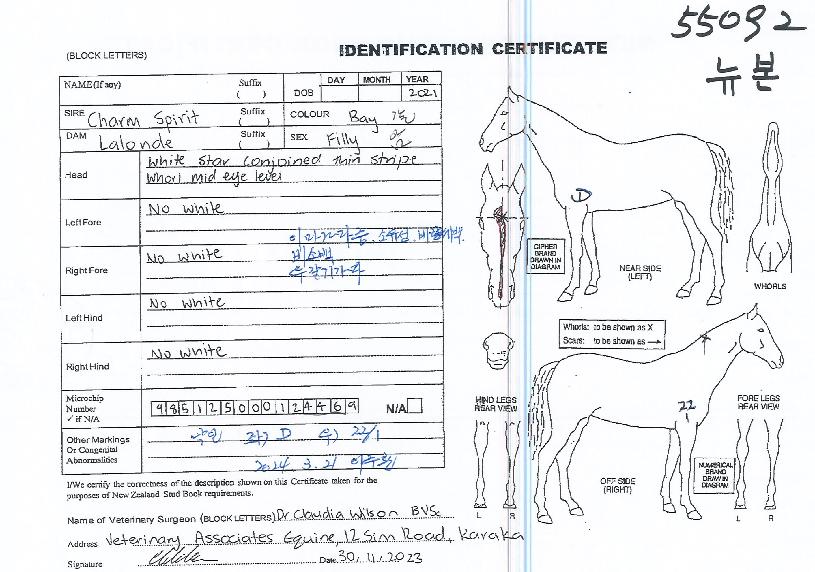 55092
뉴본
(BLOCK LETTERS)
IDENTIFICATION CERTIFICATE
NAME (If any)
Suffix
( )
DOB
DAY
MONTH
YEAR
2021
SIRE Charm Spirit
Suffix
( )
COLOUR Bay
DAM Lalonde
Suffix
( )
SEX Filly 암
Head
White star conjoined thin stripe
Whorl mid eye level
Left Fore
No white
Right Fore
No white
비소백
Left Hind
No white
Right Hind
No white
Microchip
Number
✓ if N/A
985125000124469
N/A
Other Markings
Or Congenital
Abnormalities
낙인 좌) D 우) 22/1
2024 3. 21
I/We certify the correctness of the description shown on this Certificate taken for the
purposes of New Zealand Stud Book requirements.
Name of Veterinary Surgeon (BLOCK LETTERS) Dr Claudia Wilson BVSc
Address Veterinary Associates Equine, 12 Sim Road, Karaka
Signature
Date 30.11.2023
D
CIPHER
BRAND
DRAWN IN
DIAGRAM
NEAR SIDE
(LEFT)
WHORLS
Whorls: to be shown as X
Scars: to be shown as →
HIND LEGS
REAR VIEW
22
1
FORE LEGS
REAR VIEW
OFF SIDE
(RIGHT)
NUMERICAL
BRAND
DRAWN IN
DIAGRAM
L R
L R